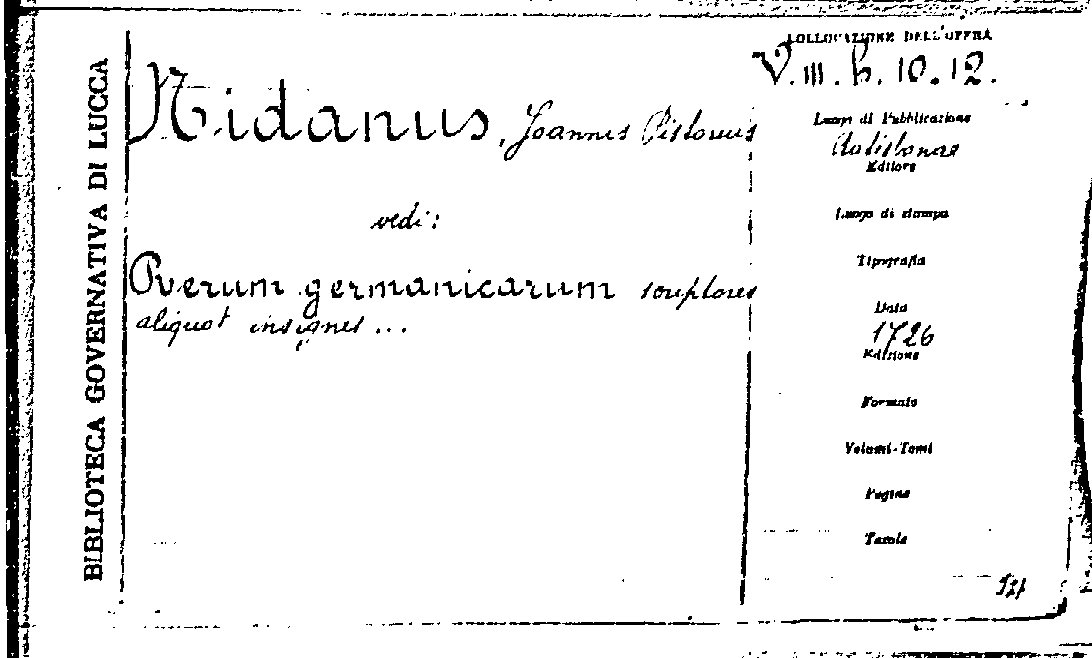 BIBLIOTECA GOVERNATIVA DI LUCCA
Nidanus, Joannes Pistorius
vedi:
Rerum germanicarum scriptores
aliquot insignes...
COLLOCAZIONE DELL'OPERA
V.III.h.10.12.
Luogo di Pubblicazione
Ratisbonae
Editore
Luogo di stampa
Tipografia
Data
1726
Edizione
Formato
Volumi-Tomi
Pagine
Tavole